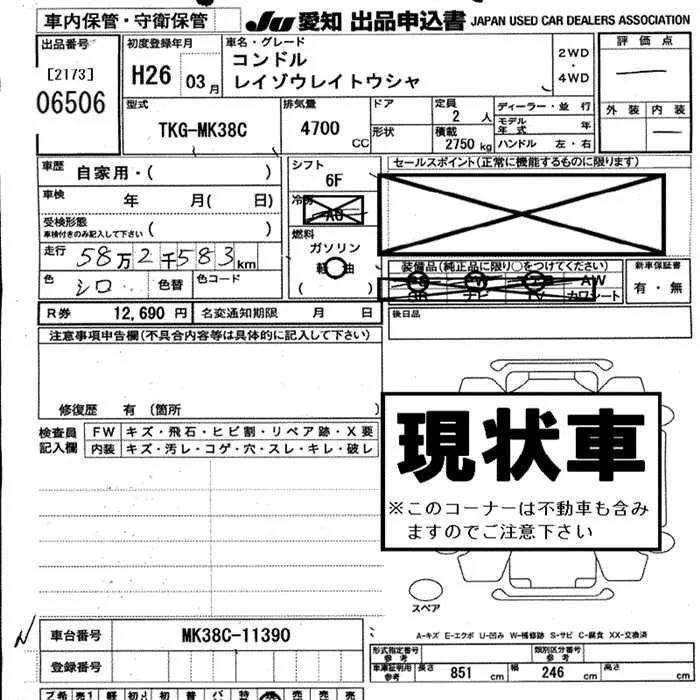 車内保管・守衛保管 JU 愛知 出品申込書 JAPAN USED CAR DEALERS ASSOCIATION
出品番号 初度登録年月 車名・グレード 評価点
[2173] H26 03月 コンドル 2WD
06506 レイゾウレイトウシャ ・4WD
型式 排気量 ドア 定員 2人 ディーラー・並行 外装 内装
TKG-MK38C 4700CC 形状 積載 2750kg モデル年式 年
ハンドル 左・右
車歴 自家用・( ) シフト 6F セールスポイント(正常に機能するものに限ります)
車検 年 月( 日) 冷房 AC
受検形態 ( ) 燃料
車検付きのみ記入して下さい ガソリン
走行 58万2千583km 軽油 装備品(純正品に限り○をつけてください) 新車保証書
色 シロ 色替 色コード ( ) ナビ TV AW カワシート 有・無
R券 12,690円 名変通知期限 月 日 後日品
注意事項申告欄(不具合内容等は具体的に記入して下さい)
修復歴 有 (箇所 )
検査員 FW キズ・飛石・ヒビ割・リペア跡・X要
記入欄 内装 キズ・汚レ・コゲ・穴・スレ・キレ・破レ
現状車
※このコーナーは不動車も含み
ますのでご注意下さい
スペア
A-キズ E-エクボ U-凹み W-補修跡 S-サビ C-腐食 XX-交換済
車台番号 MK38C-11390 形式指定番号 参考 類別区分番号 参考
登録番号 車庫証明用 参考 長さ 851cm 幅 246cm 高さ cm